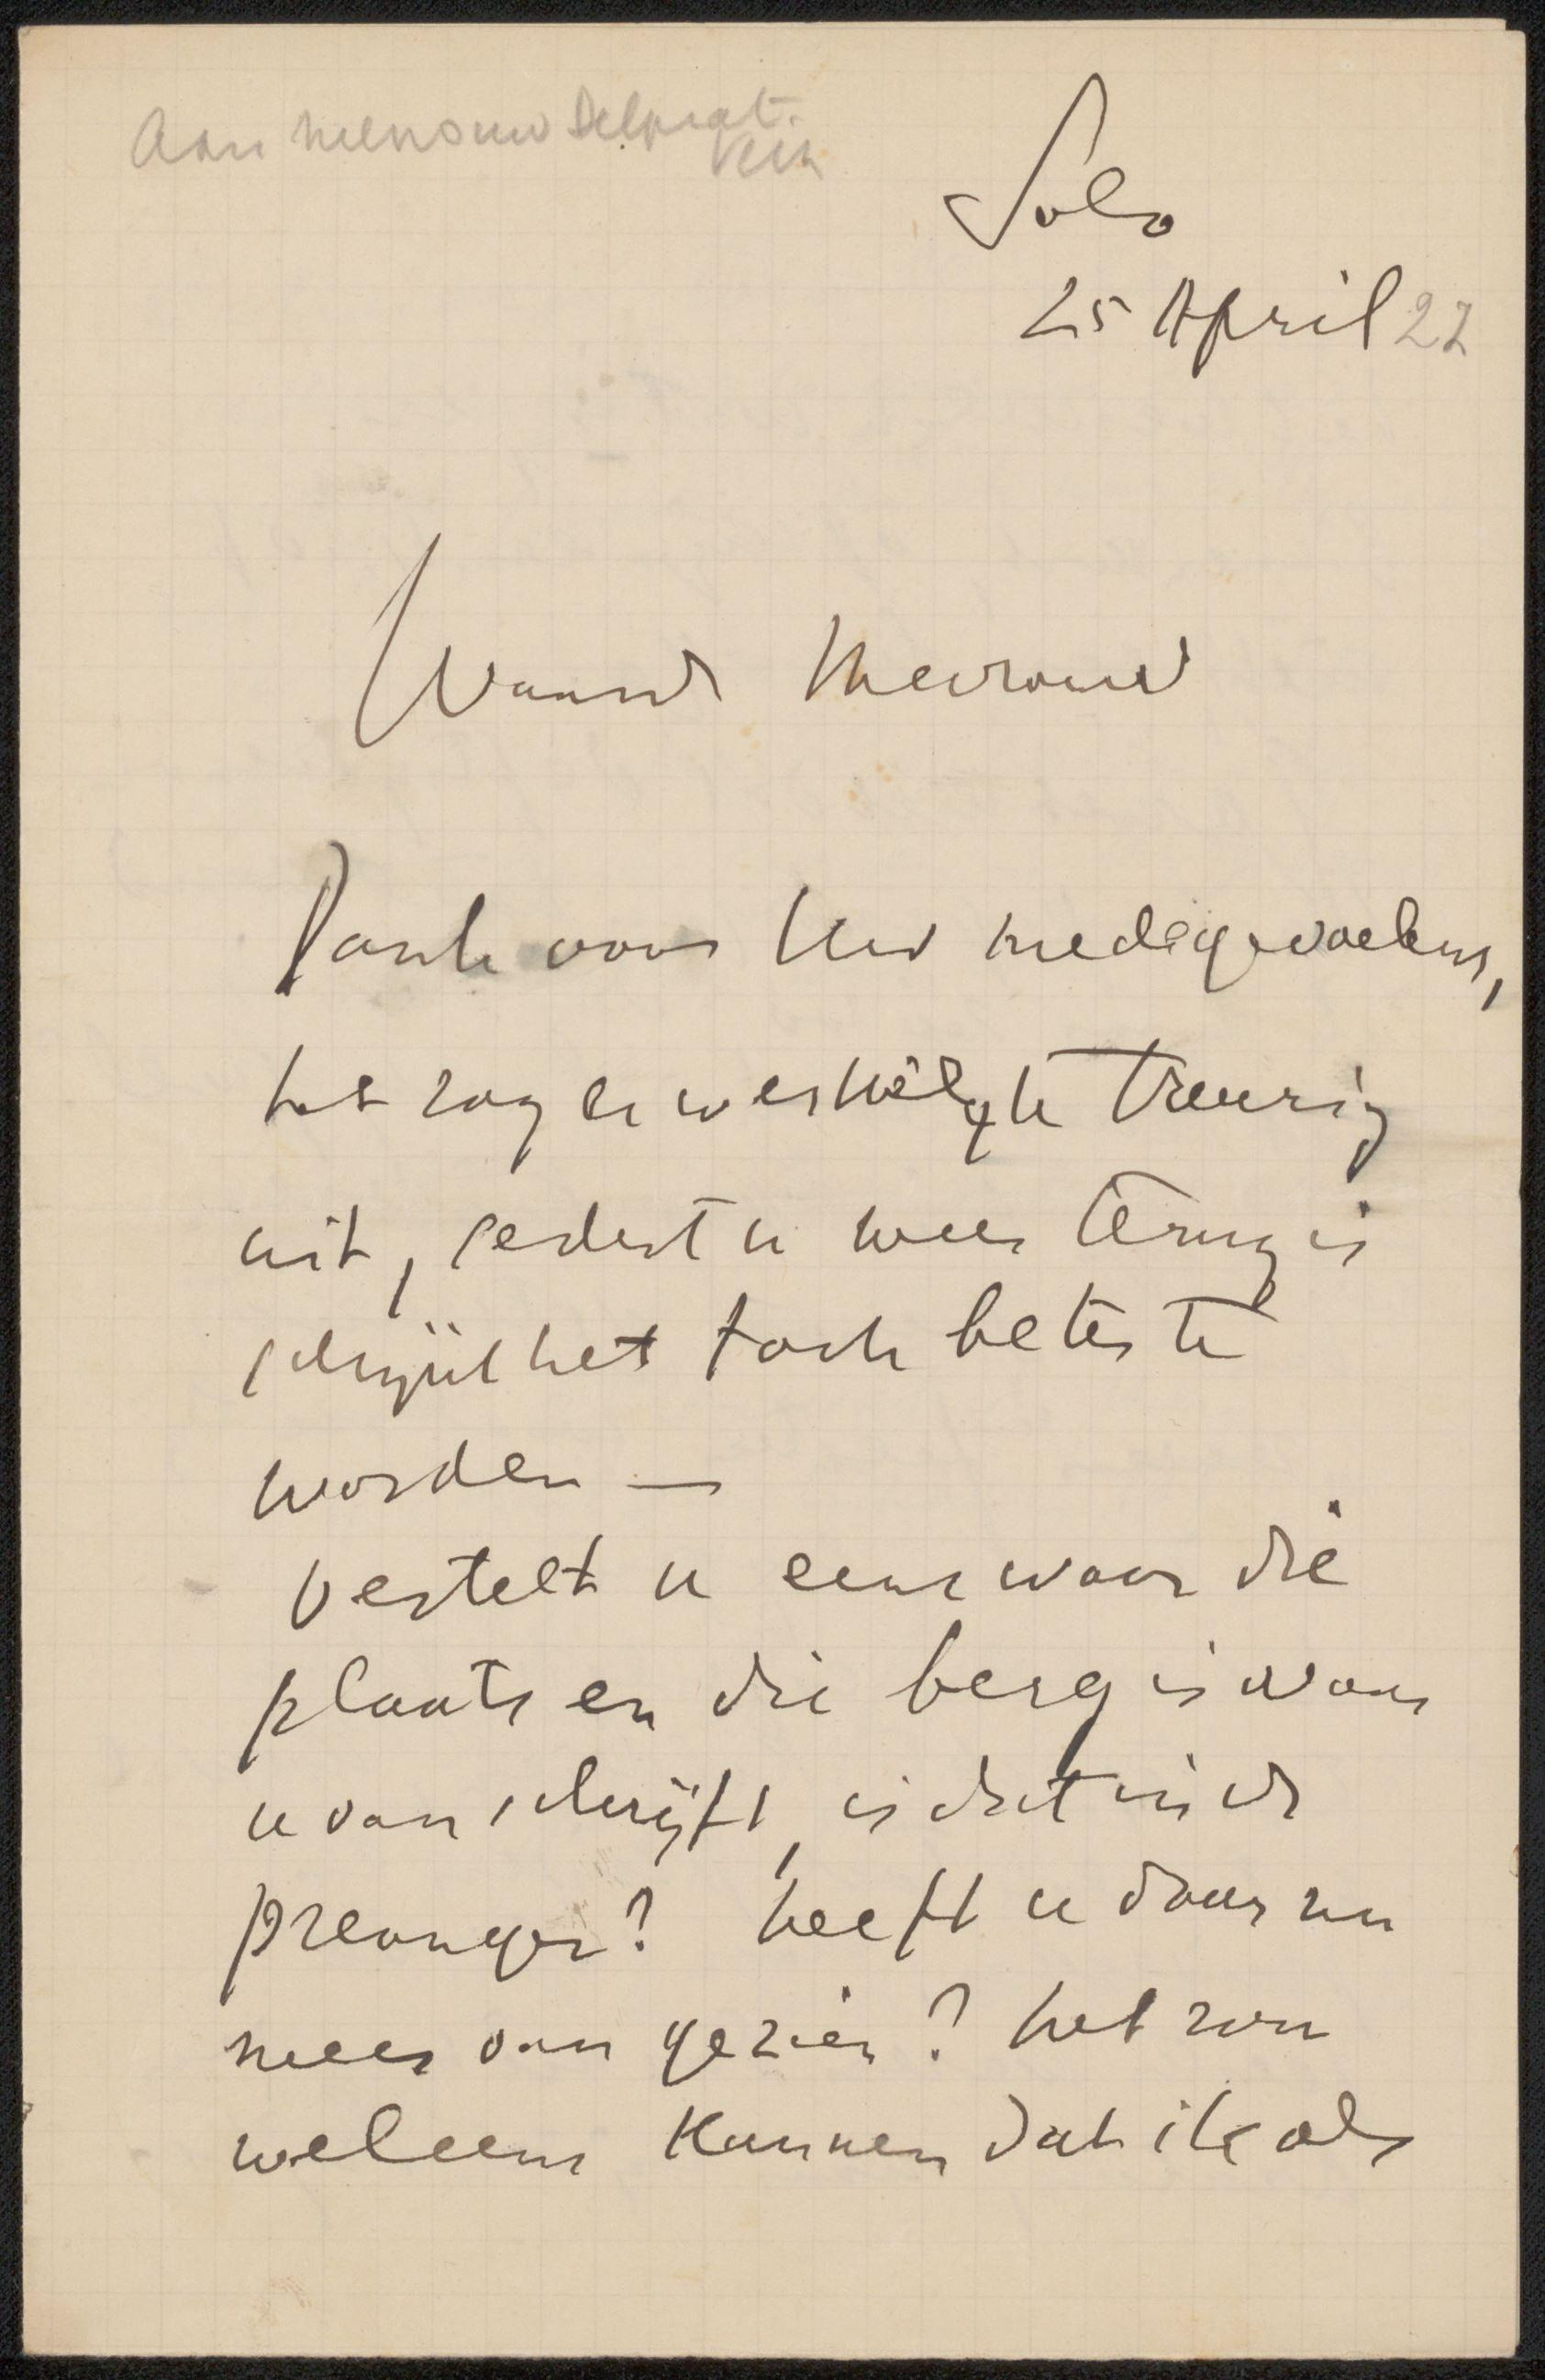 Aan mevrouw Delprat.
Solo
25 April 22
Waarde Mevrouw
Dank voor Uw medegevoelens,
het zag er werkelijk treurig
uit, sedert u weer terug is
schijnt het toch beter te
worden —
Vertelt u eens waar die
plaats en die berg is waar
u van schrijft, is dat in de
preanger? heeft u daar nu
meer van gezien? het zou
weleens kunnen dat ik als